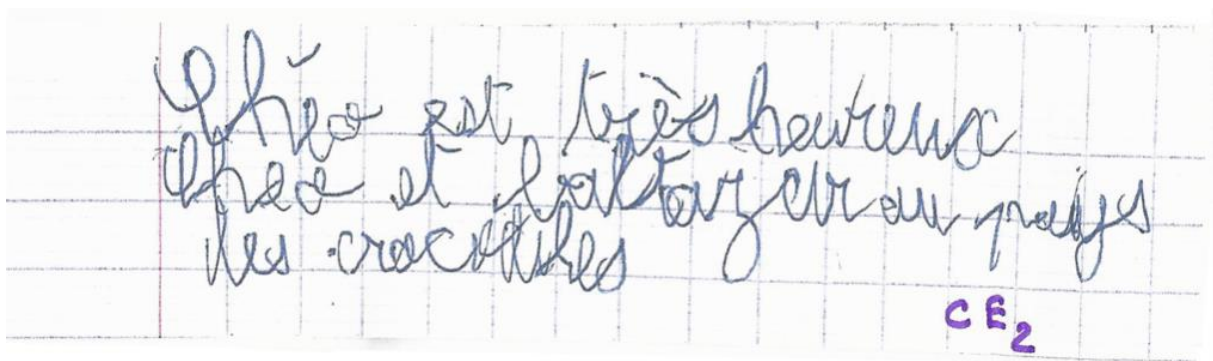 Théo est très heureux
Théo et baltazar au pays
des crocodiles
CE2